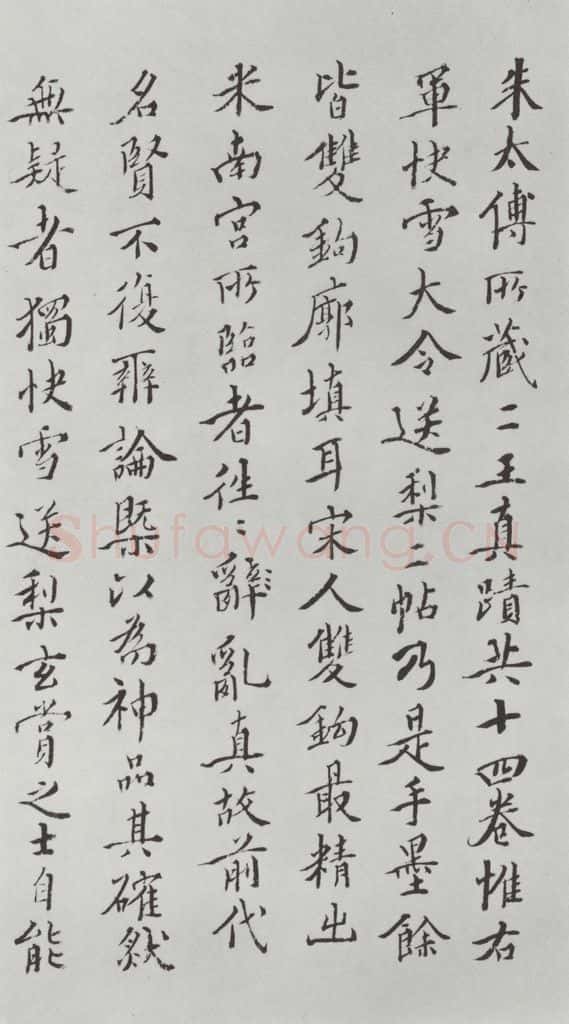 朱太傅所藏二王真蹟共十四卷惟右
軍快雪大令送梨二帖乃是手墨餘
皆雙鉤廓填耳宋人雙鉤最精出
米南宮所臨者往〻亂真故前代
名賢不復辨論槩以為神品其確然
無疑者獨快雪送梨玄賞之士自能
Shufawang.CN